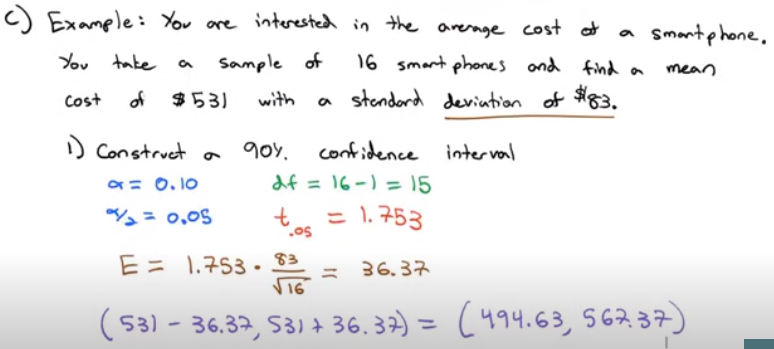 c) Example: You are interested in the average cost of a smartphone.
You take a sample of 16 smartphones and find a mean
cost of $531 with a standard deviation of $83.
1) Construct a 90% confidence interval
α = 0.10 df = 16-1 = 15
α/2 = 0.05 t.05 = 1.753
E = 1.753 · 83/√16 = 36.37
(531 - 36.37, 531 + 36.37) = (494.63, 567.37)